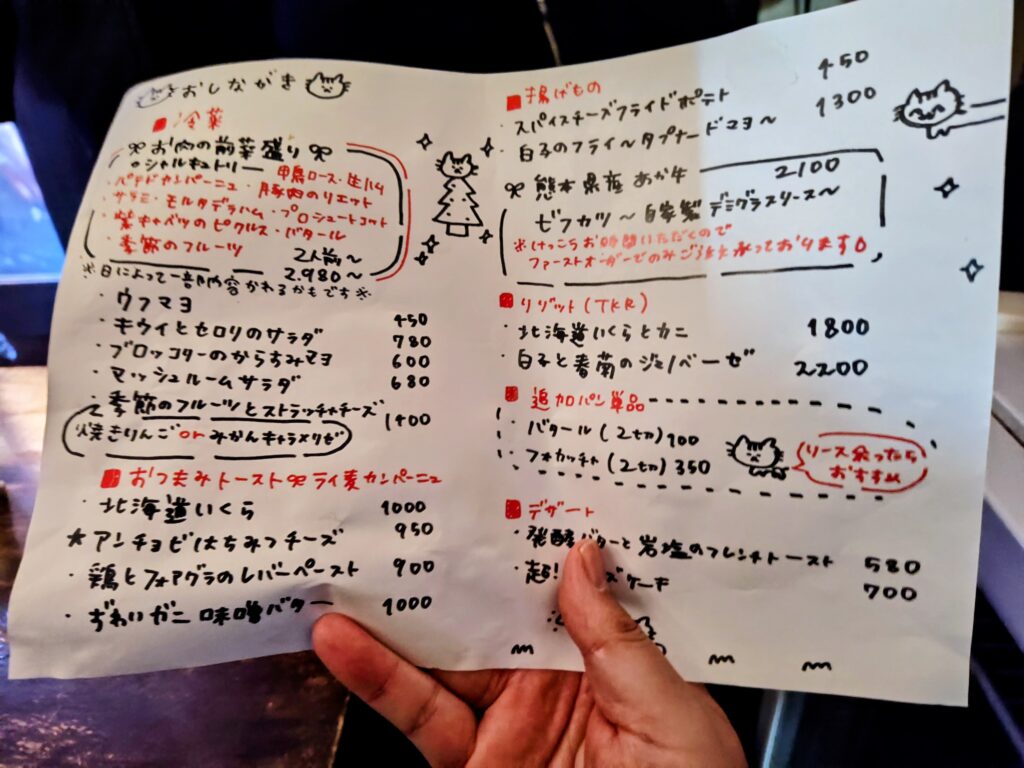 おしながき
冷菜
お肉の前菜盛り
シャルキュトリー
甲鴨ロース・生ハム
・パテドカンパーニュ・豚肉のリエット
・サラミ・モルタデラハム・プロシュートコット
・紫キャベツのピクルス・バタール
・季節のフルーツ
2人前〜
2.980〜
※日によって一部内容かわるかもです※
・ウフマヨ 450
・キウイとセロリのサラダ 780
・ブロッコリーのからすみマヨ 600
・マッシュルームサラダ 680
・季節のフルーツとストラッチャチーズ
1400
焼きりんご or みかんキャラメリゼ
おつまみトースト ライ麦カンパーニュ
・北海道いくら 1000
★アンチョビはちみつチーズ 950
・鶏とフォアグラのレバーペースト 900
・ずわいガニ味噌バター 1000
揚げもの
・スパイスチーズフライドポテト 450
・白子のフライ〜タプナードマヨ〜 1300
熊本県産 あか牛 2100
ビフカツ〜自家製デミグラスソース〜
※けっこうお時間いただくので
ファーストオーダーでのみご注文承っております
リゾット(TKR)
・北海道いくらとカニ 1800
・白子と春菊のジェノベーゼ 2200
追加パン単品
・バタール(2切)100
・フォカッチャ(2切)350
ソース余ったら
おすすめ
デザート
・発酵バターと岩塩のフレンチトースト 580
・超! ズケーキ 700